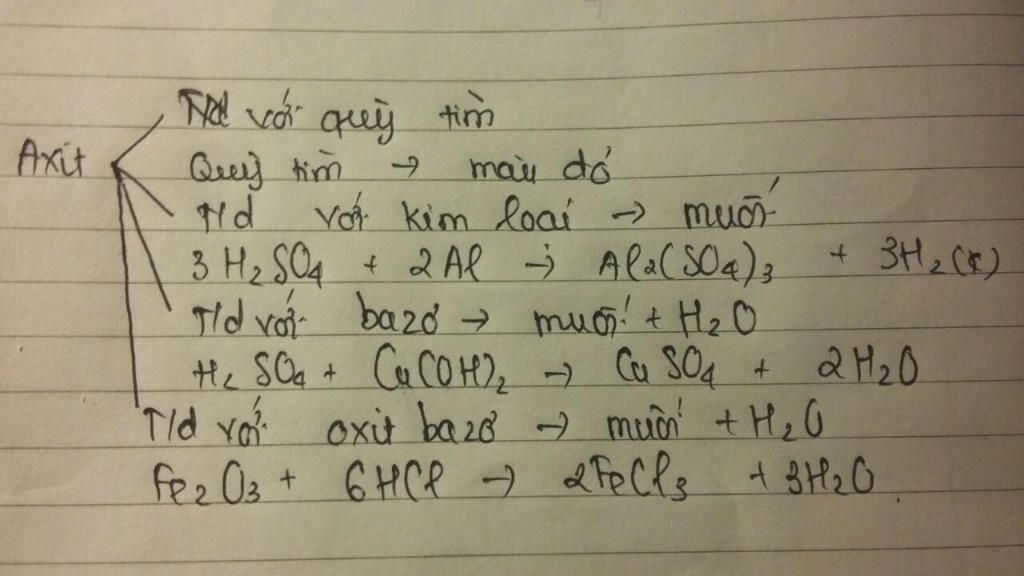 T/d với quỳ tím
Axit
Quỳ tím → màu đỏ
T/d với kim loại → muối
3 H₂SO₄ + 2Al → Al₂(SO₄)₃ + 3H₂(k)
T/d với bazơ → muối + H₂O
H₂SO₄ + Cu(OH)₂ → CuSO₄ + 2H₂O
T/d với oxit bazơ → muối + H₂O
Fe₂O₃ + 6HCl → 2FeCl₃ + 3H₂O